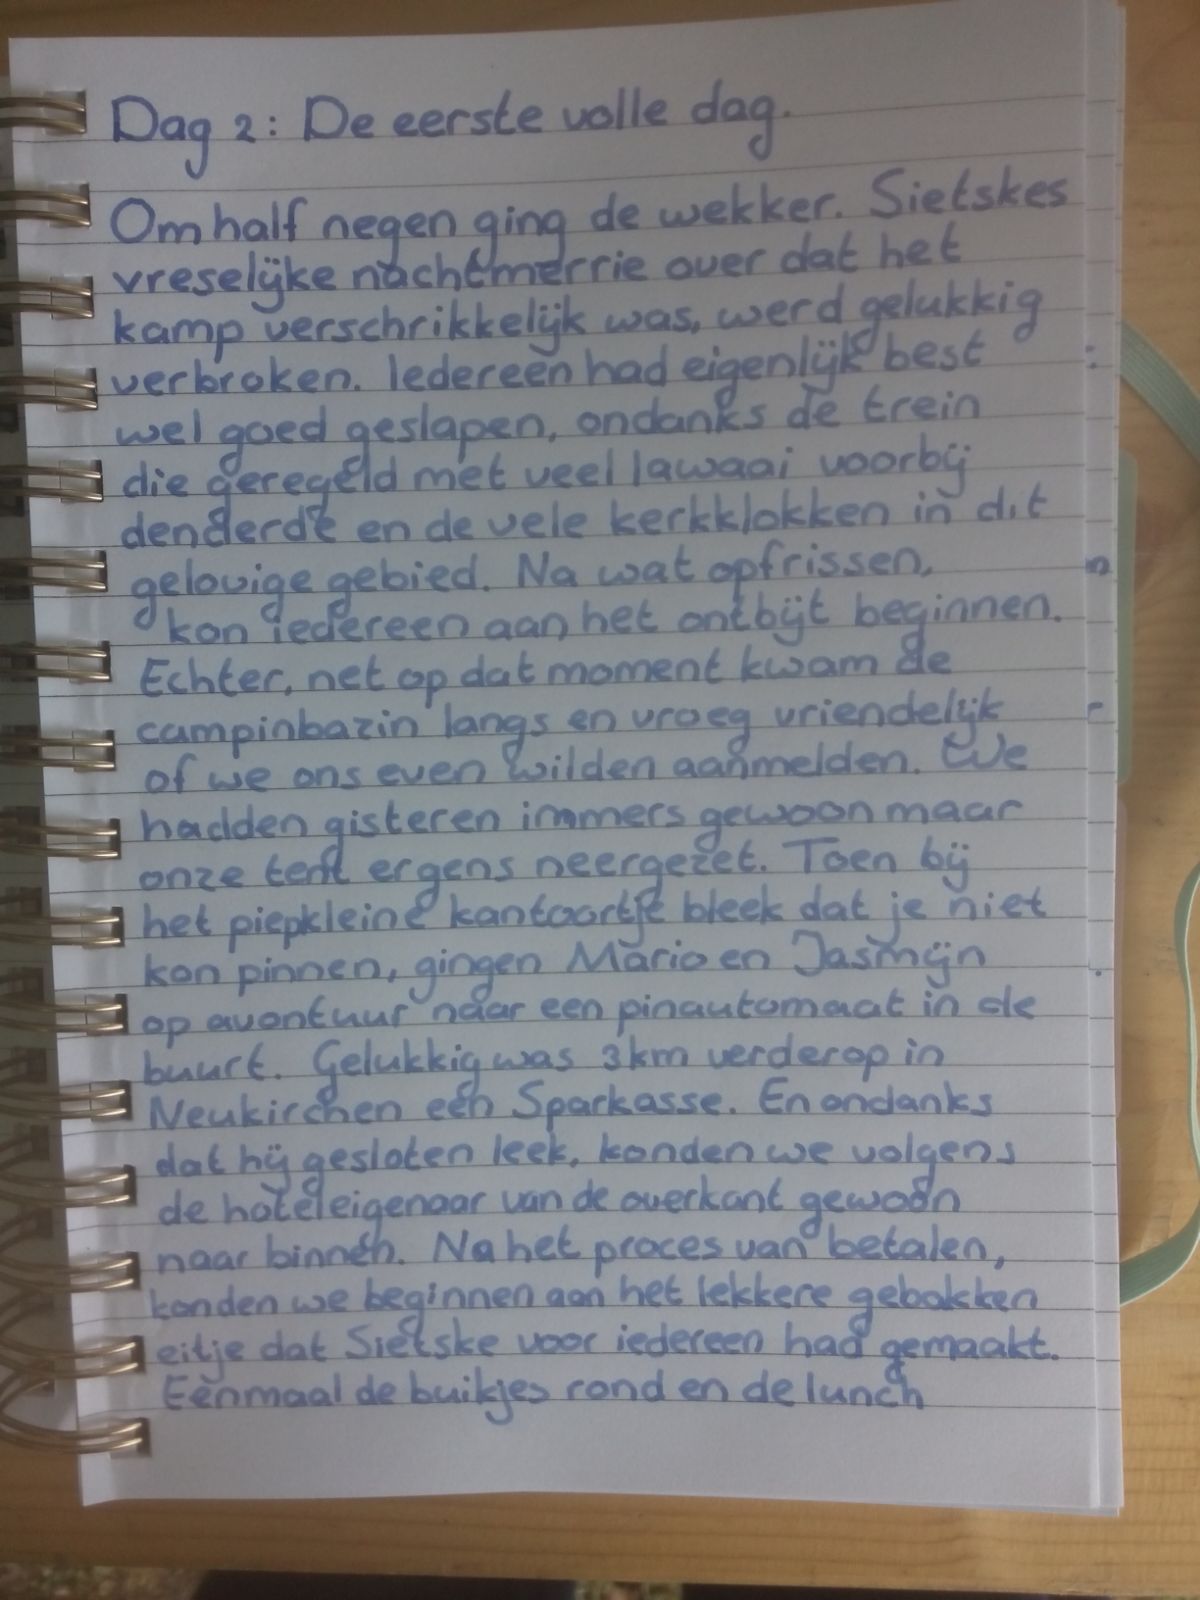 Dag 2: De eerste volle dag.
Om half negen ging de wekker. Sietskes
vreselijke nachtmerrie over dat het
kamp verschrikkelijk was, werd gelukkig
verbroken. Iedereen had eigenlijk best
wel goed geslapen, ondanks de trein
die geregeld met veel lawaai voorbij
denderde en de vele kerkklokken in dit
gelovige gebied. Na wat opfrissen,
kon iedereen aan het ontbijt beginnen.
Echter, net op dat moment kwam de
campinbazin langs en vroeg vriendelijk
of we ons even wilden aanmelden. We
hadden gisteren immers gewoon maar
onze tent ergens neergezet. Toen bij
het piepkleine kantoortje bleek dat je niet
kon pinnen, gingen Mario en Jasmijn
op avontuur naar een pinautomaat in de
buurt. Gelukkig was 3km verderop in
Neukirchen een Sparkasse. En ondanks
dat hij gesloten leek, konden we volgens
de hoteleigenaar van de overkant gewoon
naar binnen. Na het proces van betalen,
konden we beginnen aan het lekkere gebakken
eitje dat Sietske voor iedereen had gemaakt.
Eénmaal de buikjes rond en de lunch